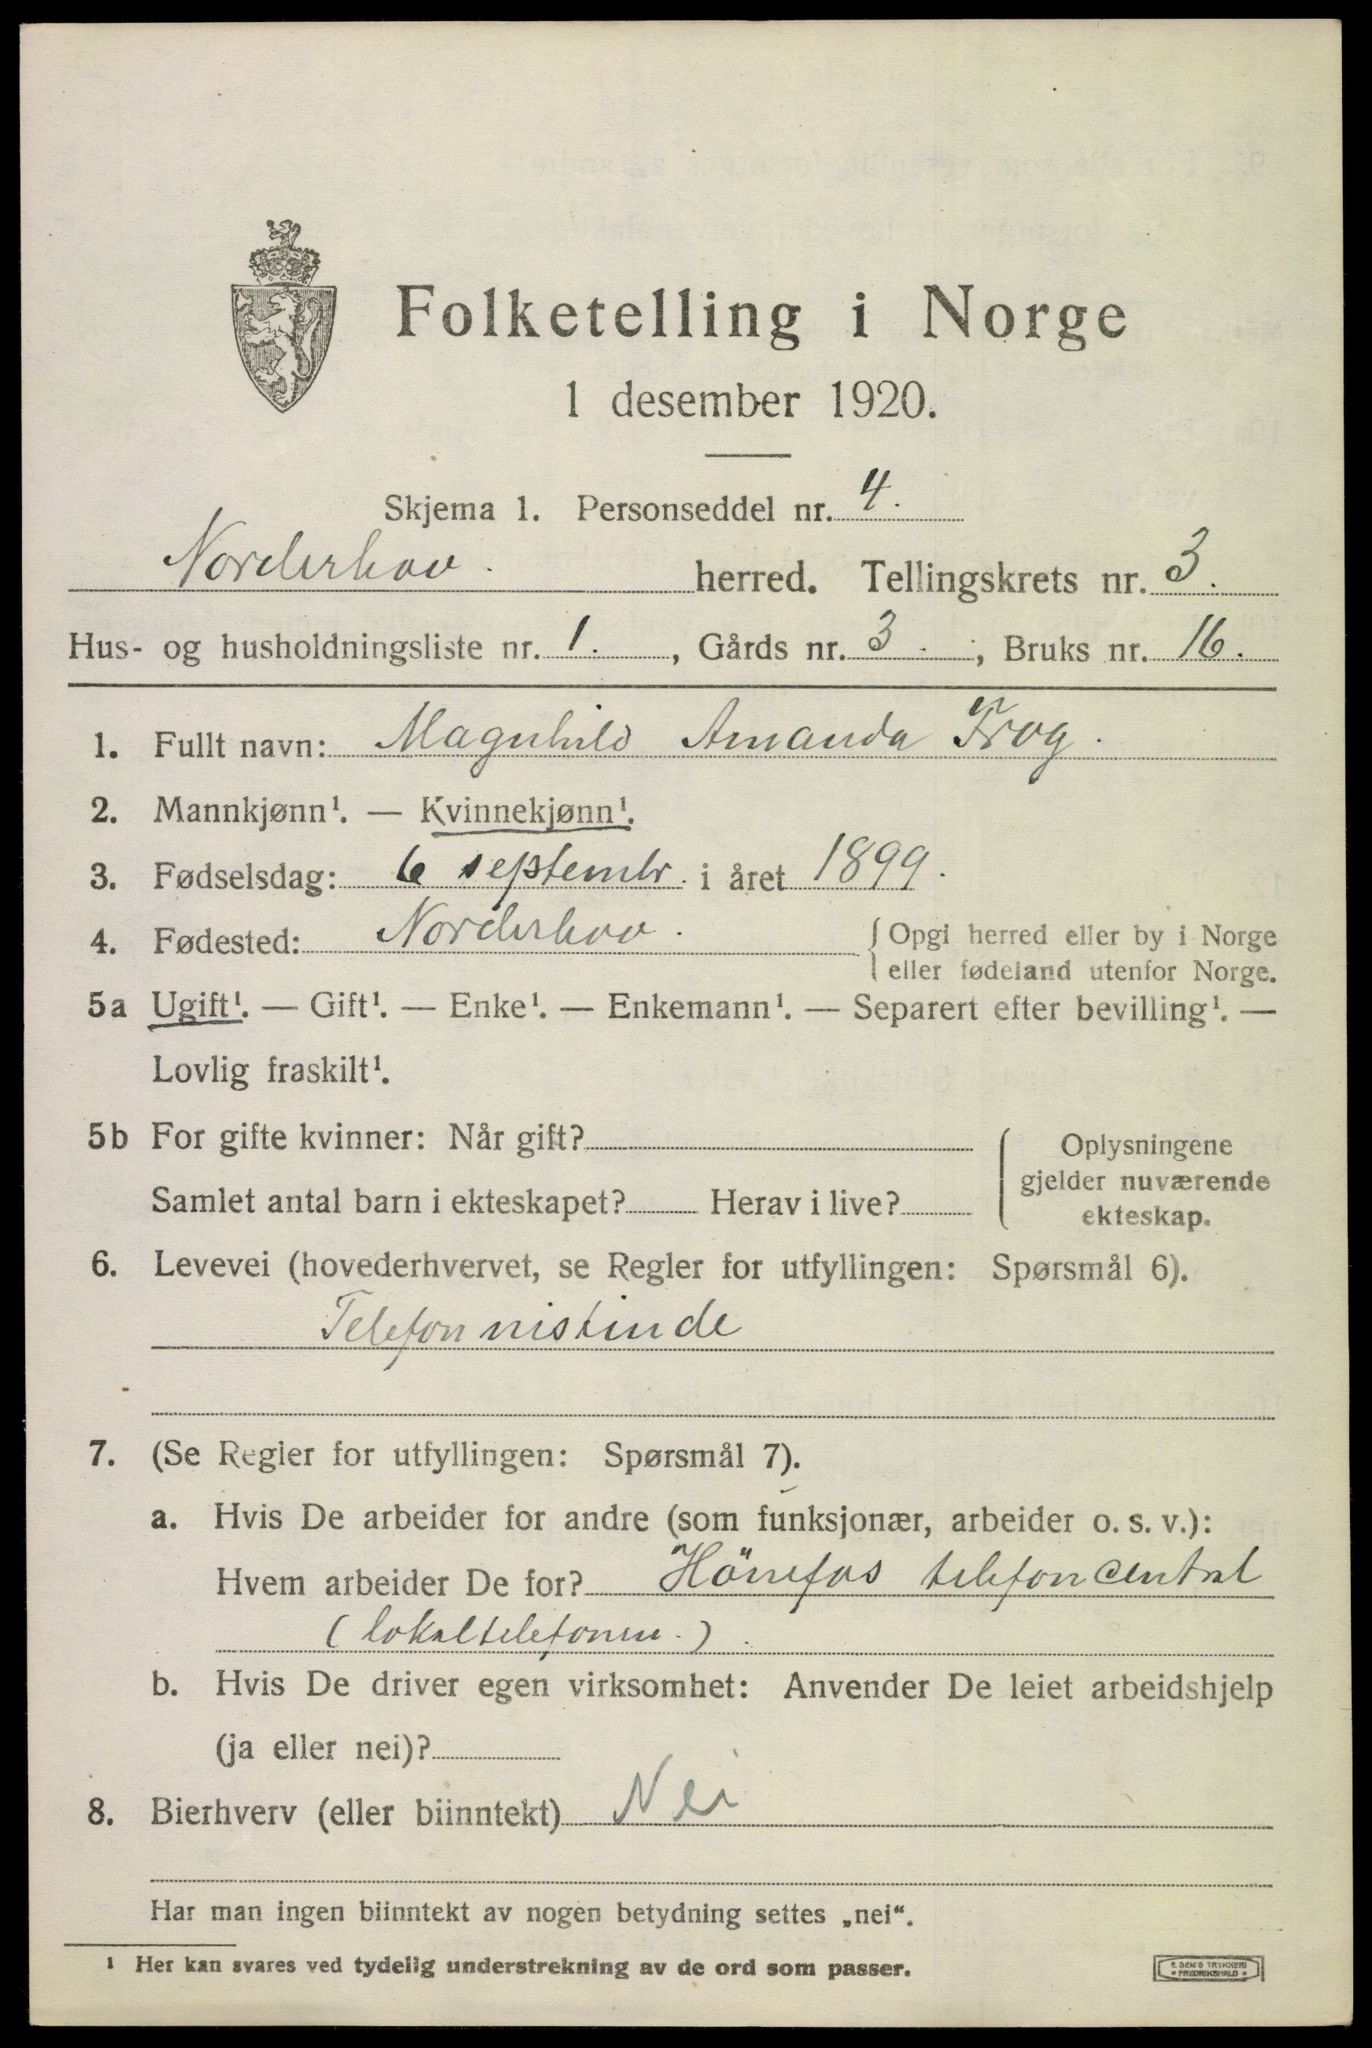 Folketelling i Norge
1 desember 1920.
Skjema 1. Personseddel nr. 4.
Norderhov. herred. Tellingskrets nr. 3.
Hus- og husholdningsliste nr. 1. , Gårds nr. 3. , Bruks nr. 16.
1. Fullt navn: Magnhild Amanda Frog.
2. Mannkjønn¹. — Kvinnekjønn¹.
3. Fødselsdag: 6 septembr. i året 1899.
4. Fødested: Norderhov. { Opgi herred eller by i Norge
eller fødeland utenfor Norge.
5a Ugift¹. — Gift¹. — Enke¹. — Enkemann¹. — Separert efter bevilling¹. —
Lovlig fraskilt¹.
5b For gifte kvinner: Når gift? { Oplysningene
gjelder nuværende
Samlet antal barn i ekteskapet? Herav i live? ekteskap.
6. Levevei (hovederhvervet, se Regler for utfyllingen: Spørsmål 6).
Telefonnistinde
7. (Se Regler for utfyllingen: Spørsmål 7).
a. Hvis De arbeider for andre (som funksjonær, arbeider o. s. v.):
Hvem arbeider De for? Hönefos telefoncentral
(lokaltelefonen.).
b. Hvis De driver egen virksomhet: Anvender De leiet arbeidshjelp
(ja eller nei)?
8. Bierhverv (eller biinntekt) Nei
Har man ingen biinntekt av nogen betydning settes „nei“.
¹ Her kan svares ved tydelig understrekning av de ord som passer.
E. SEM'S TRYKKERI
• FREDRIKSHALD •